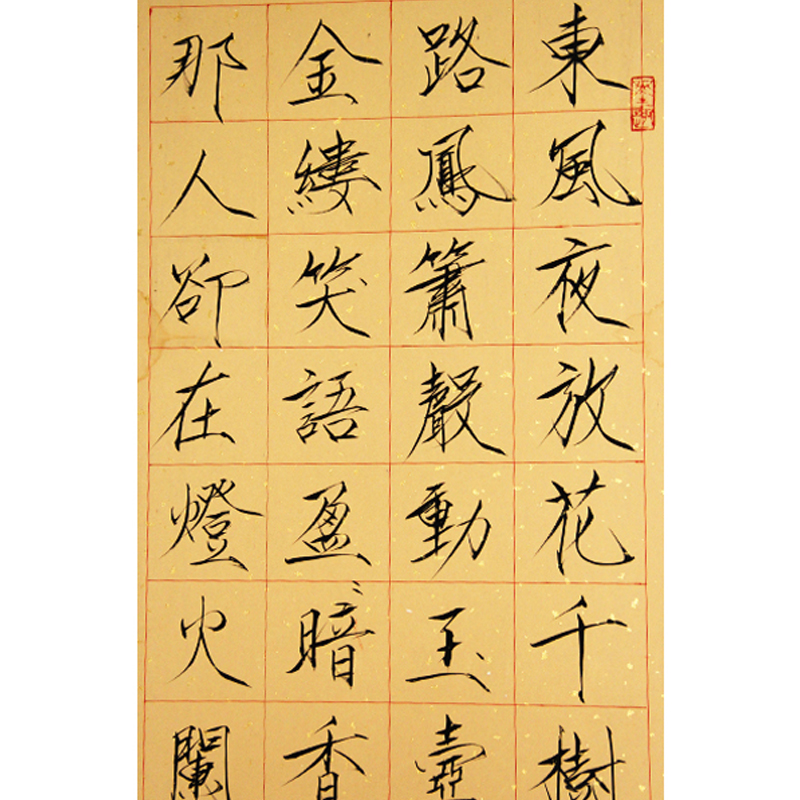 東風夜放花千樹
路鳳簫聲動玉壺
金縷笑語盈〻暗香
那人卻在燈火闌